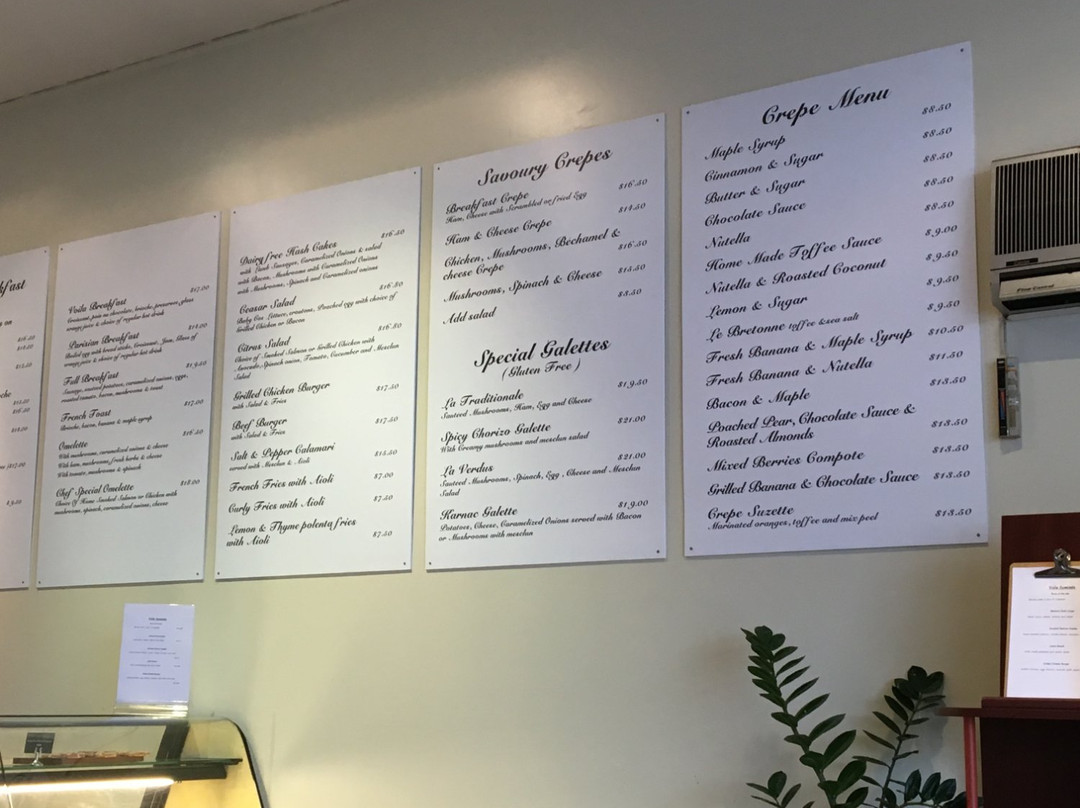 Voila Breakfast $17.00
Croissant, pain au chocolate, brioche, preserves, glass
orange juice & choice of regular hot drink
Parisian Breakfast $14.00
Boiled egg with bread sticks, Croissant, Jam, Glass of
orange juice & choice of regular hot drink
Full Breakfast $19.50
Sausage, sauteed potatoes, caramelized onions, eggs,
roasted tomato, bacon, mushrooms & toast
French Toast $17.00
Brioche, bacon, banana & maple syrup
Omelette $16.50
With mushrooms, caramelized onions & cheese
With ham, mushrooms, fresh herbs & cheese
With tomato, mushrooms & spinach
Chef Special Omelette $18.00
Choice Of Home Smoked Salmon or Chicken with
mushrooms, spinach, caramelized onions, cheese
Dairy free Hash Cakes $16.50
with Lamb Sausages, Caramelized Onions & salad
with Bacon, Mushrooms with Caramelized Onions
with Mushrooms, Spinach and Caramelized onions
Ceasar Salad $16.80
Baby Cos Lettuce, croutons, Poached egg with choice of
Grilled Chicken or Bacon
Citrus Salad $16.80
Choice of Smoked Salmon or Grilled Chicken with
Avocado, Spinach onion, Tomato, Cucumber and Mesclun
Salad
Grilled Chicken Burger $17.50
with Salad & Fries
Beef Burger $17.50
with Salad & Fries
Salt & Pepper Calamari $15.50
served with Mesclun & Aioli
French Fries with Aioli $7.00
Curly Fries with Aioli $7.50
Lemon & Thyme polenta fries
with Aioli $7.50
Savoury Crepes
Breakfast Crepe $16.50
Ham, Cheese with Scrambled or fried Egg
Ham & Cheese Crepe $14.50
Chicken, Mushrooms, Bechamel &
cheese Crepe $16.50
Mushrooms, Spinach & Cheese $15.50
Add salad $3.50
Special Galettes
( Gluten Free )
La Traditionale $19.50
Sauteed Mushrooms, Ham, Egg and Cheese
Spicy Chorizo Galette $21.00
With Creamy mushrooms and mesclun salad
La Verdus $21.00
Sauteed Mushrooms, Spinach, Egg ,Cheese and Mesclun
Salad
Karnac Galette $19.00
Potatoes, Cheese, Caramelized Onions served with Bacon
or Mushrooms with mesclun
Crepe Menu
Maple Syrup $8.50
Cinnamon & Sugar $8.50
Butter & Sugar $8.50
Chocolate Sauce $8.50
Nutella $8.50
Home Made Toffee Sauce $9.00
Nutella & Roasted Coconut $9.50
Lemon & Sugar $9.50
Le Bretonne toffee & sea salt $9.50
Fresh Banana & Maple Syrup $10.50
Fresh Banana & Nutella $11.50
Bacon & Maple $13.50
Poached Pear, Chocolate Sauce &
Roasted Almonds $13.50
Mixed Berries Compote $13.50
Grilled Banana & Chocolate Sauce $13.50
Crepe Suzette $13.50
Marinated oranges, toffee and mix peel